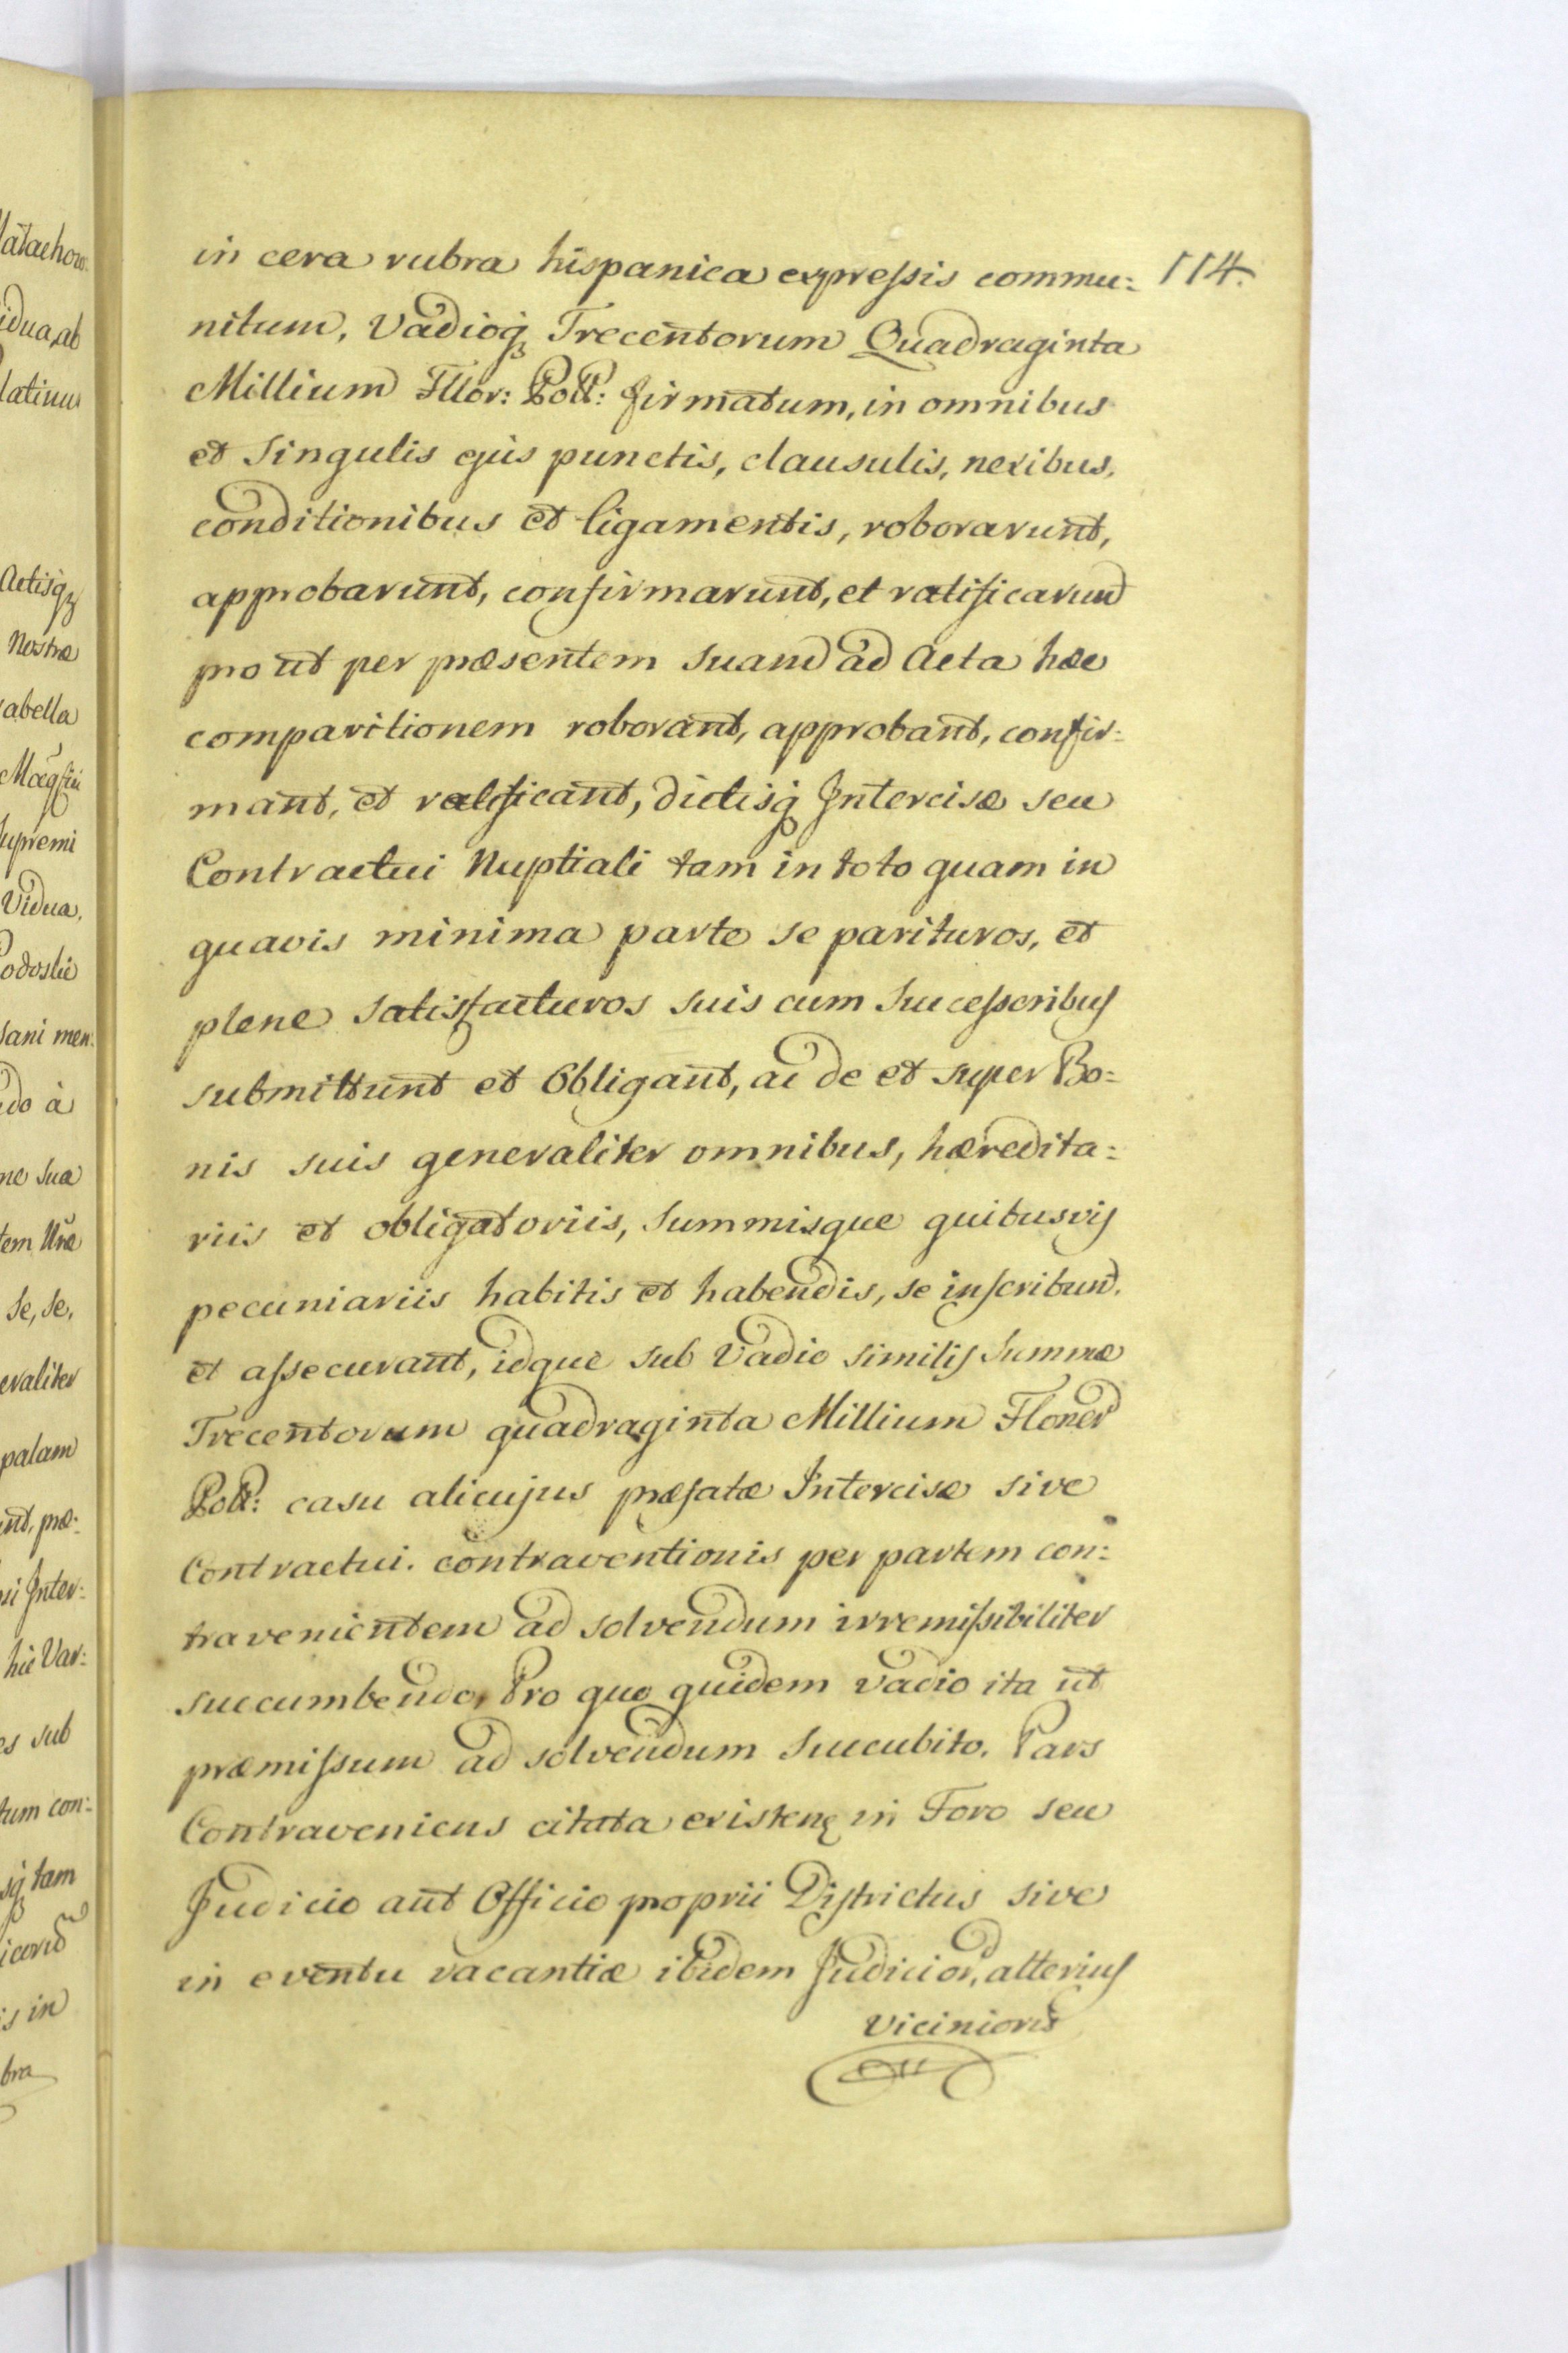 in cera rubra hispanica expreſsis commu: 114.
nitum, Vadioq̃ Trecentorum Quadraginta
Millium Fllor: Poll: firmatum, in omnibus
et Singulis ejus punctis, clausulis, nexibus,
conditionibus et ligamentis, roborarunt,
approbarunt, confirmarunt, et ratificarunt
prout per præsentem suam ad Acta hæc
comparitionem roborant, approbant, confir:
mant, et ratificant, dictisq̃ Intercisæ seu
Contractui Nuptiali tam in toto quam in
quavis minima parte se parituros, et
plene satisfacturos suis cum Succeſsoribuſ
submittunt et Obligant, ac de et super Bo:
nis suis generaliter omnibus, hæredita:
riis et obligatoriis, Summisque quibusviſ
pecuniariis habitis et habendis, se inſcribunt.
et aſsecurant, idque sub Vadio similiſ Summæ
Trecentorum quadraginta Millium Floner
Poll: casu alicujus præfatæ Intercisæ sive
Contractui. contraventionis per partem con:
travenientem ad solvendum irremiſsibiliter
succumbendo, Pro quo quidem vadio ita ut
præmiſsum ad solvendum Succubito. Pars
Contraveniens citata existenς in Foro seu
Judicio aut Officio proprii Diſtrictus sive
in eventu vacantiæ ibidem Judicior, alteriuſ
Vicinioris
latachow:
idua, ab
latinus
Actisq̃
Nostræ
abella
Mag̃fici
upremi
Vidua,
odoslie
sani men:
do à
ne sua
tem Uræ
se, se,
eraliter
palam
unt, præ:
ii Inter:
hic Var:
es sub
tum con:
sq̃ tam
s in
bra